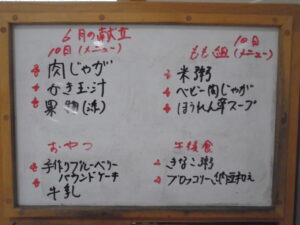 6月の献立
10日(メニュー)
肉じゃが
かき玉汁
果物(冻)
もも組 10日(メニュー)
米粥
ベビー肉じゃが
ほうれん草スープ
おやつ
手作りブルーベリー
パウンドケーキ
牛乳
午後食
きなこ粥
ブロッコリー納豆和え